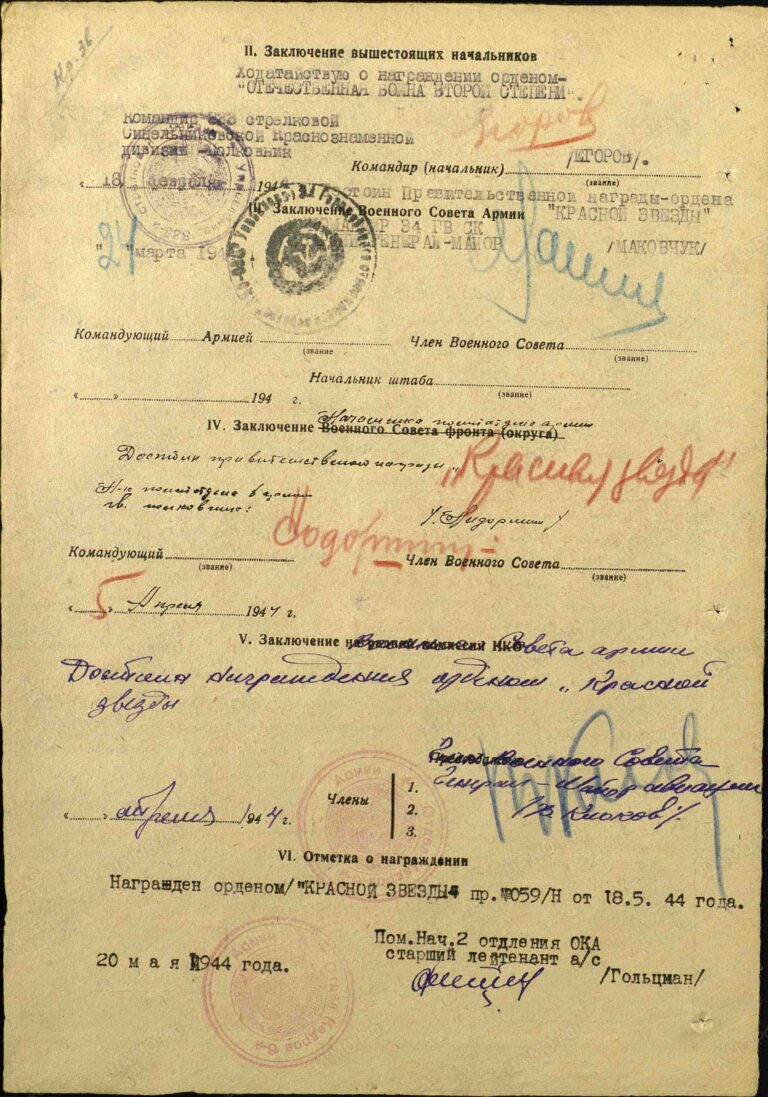 Пр. 36
II. Заключение вышестоящих начальников
Ходатайствую о награждении орденом-
"ОТЕЧЕСТВЕННАЯ ВОЙНА ВТОРОЙ СТЕПЕНИ".
Командир 333 стрелковой
Синельниковской Краснознаменной
дивизии -Полковник
Егоров
Командир (начальник) /ЕГОРОВ/.
(звание)
"18" февраля 1944
достоин Правительственной награды-ордена
Заключение Военного Совета Армии "КРАСНОЙ ЗВЕЗДЫ"
КОМАНДИР 34 ГВ СК
"24" марта 194 ГЕНЕРАЛ-МАЙОР /МАКОВЧУК/
Командующий Армией Член Военного Совета
(звание (звание)
Начальник штаба
(звание)
" " 194 г.
Начальника политотдела армии
IV. Заключение Военного Совета фронта (округа)
Достоин правительственной награды "Красная звезда"
Н-к политотдела 6 армии
гв. полковник:
Командующий Член Военного Совета
(звание) (звание)
"5" Апреля 1944 г.
V. Заключение наградной комиссии НКО Совета армии
Достоин награждения орденом "Красной
звезды
Военного Совета
Генерал-майор авиации
Члены 1.
2.
3.
/В. Клоков/
" " апреля 1944 г.
VI. Отметка о награждении
Награжден орденом/"КРАСНОЙ ЗВЕЗДЫ" пр.№059/Н от 18.5. 44 года.
Пом.Нач.2 отделения ОКА
старший лейтенант а/с
20 мая 1944 года.
/Гольцман/